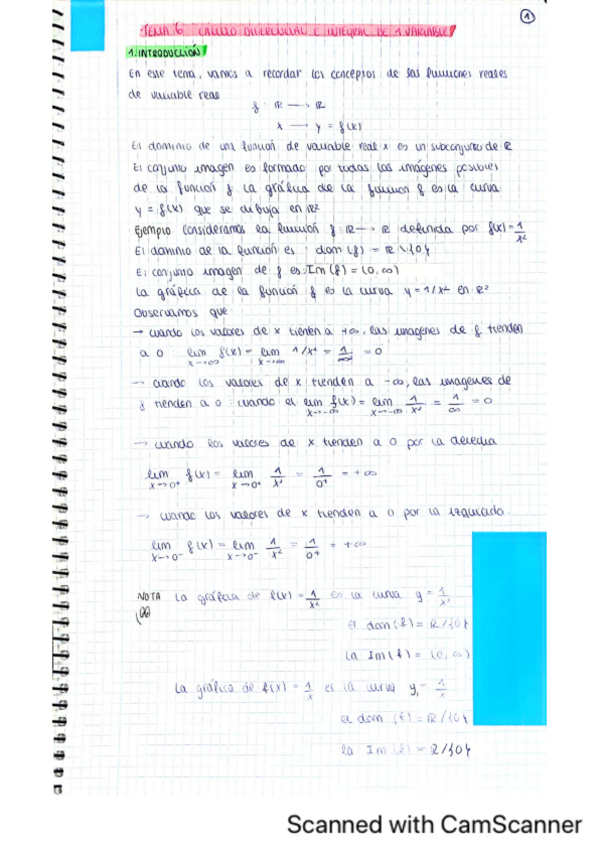 ①
TEMA 6 CÁLCULO DIFERENCIAL E INTEGRAL DE 1 VARIABLE
1. INTRODUCCIÓN
En este tema, vamos a recordar los conceptos de las funciones reales
de variable real
f: ℝ → ℝ
x → y = f(x)
El dominio de una función de variable real x es un subconjunto de ℝ
El conjunto imagen es formado por todas las imágenes posibles
de la función f. La gráfica de la función f es la curva
y = f(x) que se dibuja en ℝ²
Ejemplo Consideramos la función f: ℝ → ℝ definida por f(x) = 1/x²
El dominio de la función es: dom(f) = ℝ\{0}
El conjunto imagen de f es: Im(f) = (0, ∞)
La gráfica de la función f es la curva y = 1/x² en ℝ²
Observamos que
→ cuando los valores de x tienden a +∞, las imágenes de f tienden
a 0 lim x→∞ f(x) = lim x→∞ 1/x² = 1/∞ = 0
→ cuando los valores de x tienden a -∞, las imágenes de
f tienden a 0: cuando el lim x→-∞ f(x) = lim x→-∞ 1/x² = 1/∞ = 0
→ cuando los valores de x tienden a 0 por la derecha
lim x→0⁺ f(x) = lim x→0⁺ 1/x² = 1/0⁺ = +∞
→ cuando los valores de x tienden a 0 por la izquierda
lim x→0⁻ f(x) = lim x→0⁻ 1/x² = 1/0⁺ = +∞
NOTA La gráfica de f(x) = 1/x² es la curva y = 1/x²
el dom(f) = ℝ/{0}
la Im(f) = (0, ∞)
La gráfica de f(x) = 1/x es la curva y = 1/x
el dom (f) = ℝ/{0}
la Im(f) = ℝ/{0}
Scanned with CamScanner